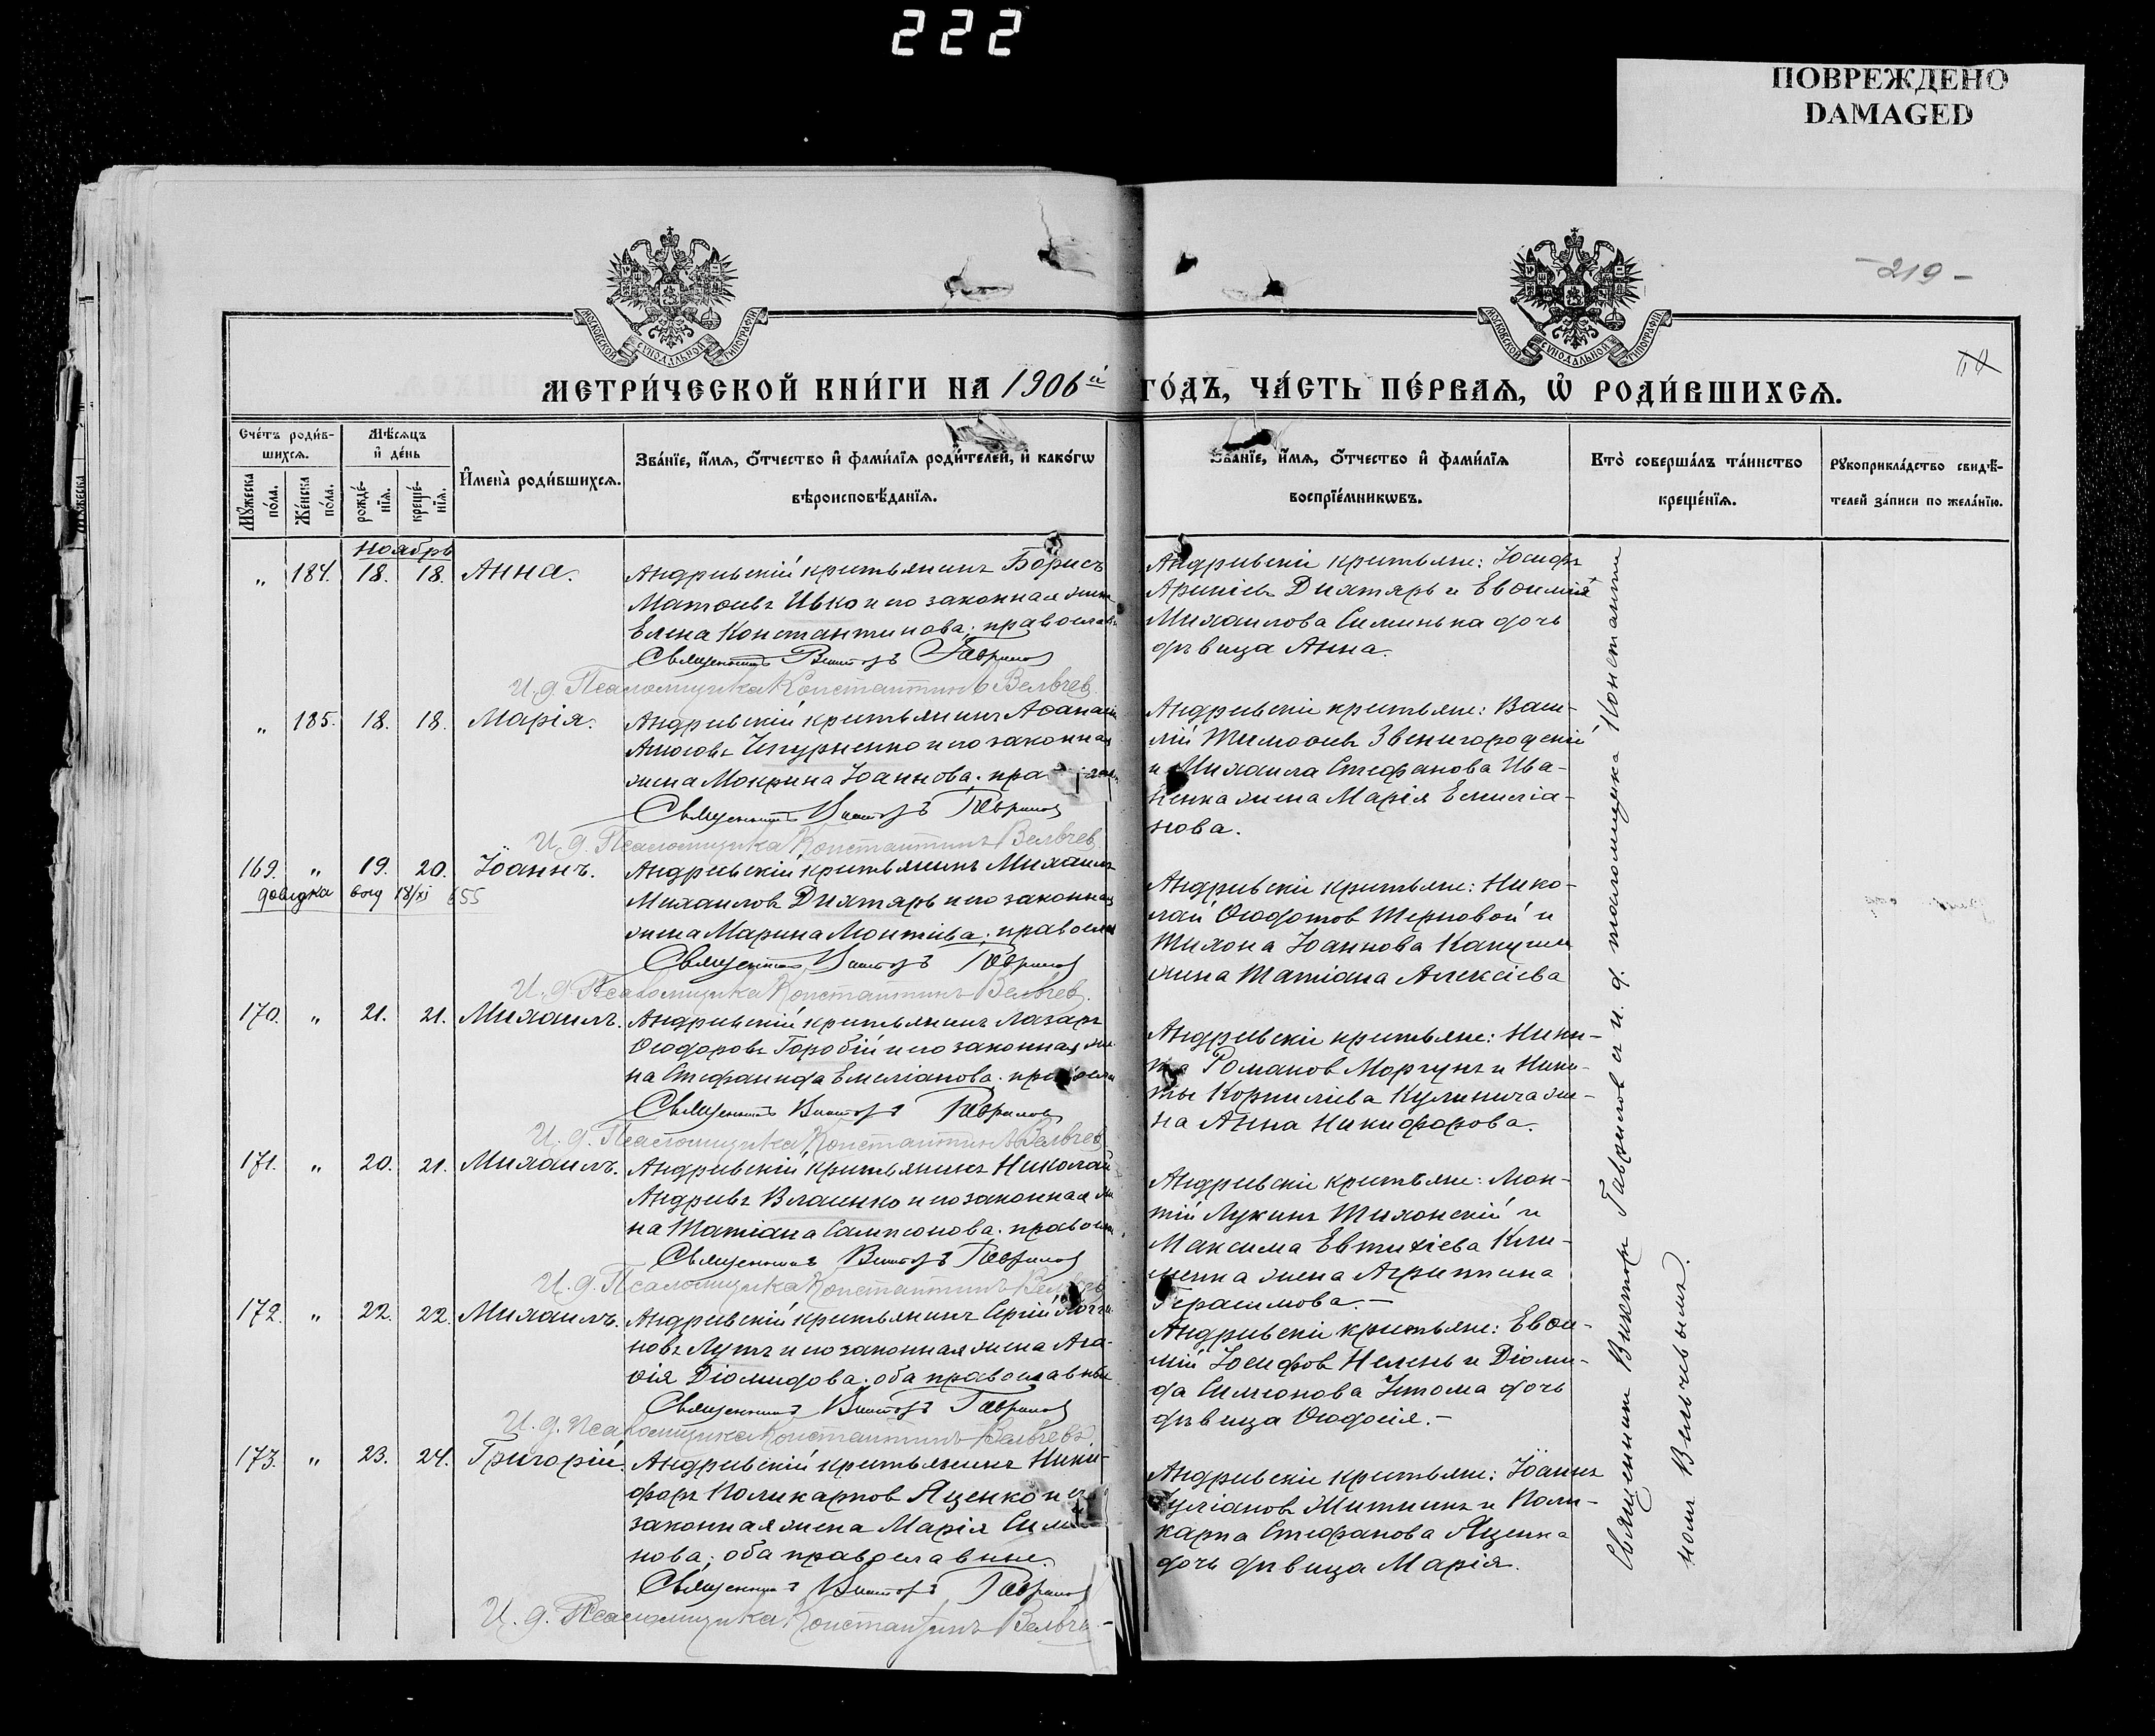 222
ПОВРЕЖДЕНО
DAMAGED
МОСКОВСКОЙ СѴНОДАЛЬНОЙ ТИПОГРАФІИ
МОСКОВСКОЙ СѴНОДАЛЬНОЙ ТИПОГРАФІИ
- 219 -
МЕТРИ́ЧЕСКОЙ КНИ́ГИ НА 1906й ГО́ДЪ, ЧА́СТЬ ПЕ́РВАѦ, Ѽ РОДИ́ВШИХСѦ.
Сче́тъ роди́в-
шихсѧ.
Мꙋ́жеска по́ла.
Же́нска по́ла.
Мѣ́сѧцъ
и҆ де́нь
рожде́-
нїѧ.
креще́-
нїѧ.
И҆мена̀ роди́вшихсѧ.
Зва́нїе, и҆́мѧ, ѻ҆́тчество и҆ фами́лїѧ роди́телей, и҆ како́гѡ
вѣроисповѣ́данїѧ.
Зва́нїе, и҆́мѧ, ѻ҆́тчество и҆ фами́лїѧ
воспрїе́мникѡвъ.
Кто̀ соверша́лъ та́инство
креще́нїѧ.
Рꙋкоприкла́дство свидѣ́-
телей за́писи по жела́нїю.
Ноябрь
„ 184. 18. 18. Анна.
Андреевскій крестьянинъ Борисъ
Матѳіевъ Ивко и его законная жен
Елена Константинова; православ
Священникъ Викторъ Гаврилов
И. д. Псаломщика Константинъ Вельчев
Андреевскіе крестьяне: Іосифъ
Дихтярь и Евѳимія
Михаилова Симинька дочь
дѣвица Анна.
„ 185. 18. 18. Марія.
Андреевскій крестьянинъ Аѳанасій
и его законная
жена Мокрина Іоаннова; пра
Священникъ Викторъ Гаврилов
И. д. Псаломщика Константинъ Вельчев
Андреевскіе крестьяне: Васи-
лій Тимоѳеевъ Звенигородскій
и Михаила Стефанова Ива-
ненка жена Марія Емиліа-
нова.
169. „ 19. 20. Іоаннъ.
довидка вид 18/xi 655
Андреевскій крестьянинъ Михаилъ
Михаиловъ Дихтярь и его законная
жена Марина Леонтіева; православ
Священникъ Викторъ Гаврилов
И. д. Псаломщика Константинъ Вельчев.
Андреевскіе крестьяне: Нико-
лай Ѳеодотов Терновой и
Тихона Іоаннова
жена Татіана Алексіева
170. „ 21. 21. Михаилъ.
Андреевскій крестьянинъ Лазарь
Ѳеодоровъ Горобій и его законная же
на Стефанида Емеліанова; правосла
Священникъ Викторъ Гаврилов
И. д. Псаломщика Константинъ Вельчев
Андреевскіе крестьяне: Ники-
та Романов Моргунъ и Ники-
ты Корниліева Кулинича же-
на Анна Никифорова.
171. „ 20. 21. Михаилъ.
Андреевскій крестьянинъ Николай
Андреевъ Власенко и его законная же
на Татіана Сампсонова; православ
Священникъ Викторъ Гаврилов
И. д. Псаломщика Константинъ Вельчев
Андреевскіе крестьяне: Леон-
тій Лукинъ Тихонскій и
Максима Евтихіева Кли-
менка жена Агриппина
Герасимова.—
172. „ 22. 22. Михаилъ.
Андреевскій крестьянинъ Сергій Логги
новъ Лутъ и его законная жена Ага-
ѳія Діомидова; оба православные
Священникъ Викторъ Гаврилов
И. д. Псаломщика Константинъ Вельчевъ
Андреевскіе крестьяне: Евѳи-
мій Іосифов Нелень и Діоми-
да Симеонова дочь
дѣвица Ѳеодосія.—
173. „ 23. 24. Григорій.
Андреевскій крестьянинъ Ники-
форъ Поликарпов Яценко и его
законная жена Марія Симео
нова; оба православные.
Священникъ Викторъ Гаврилов
И. д. Псаломщика Константинъ Вельче-
Андреевскіе крестьяне: Іоаннъ
Іуліановъ и Поли-
карпа Стефанова Яценка
дочь дѣвица Марія.
Священник Виктор Гаврилов с и. д. псаломщика Константи
ном Вельчевымъ.